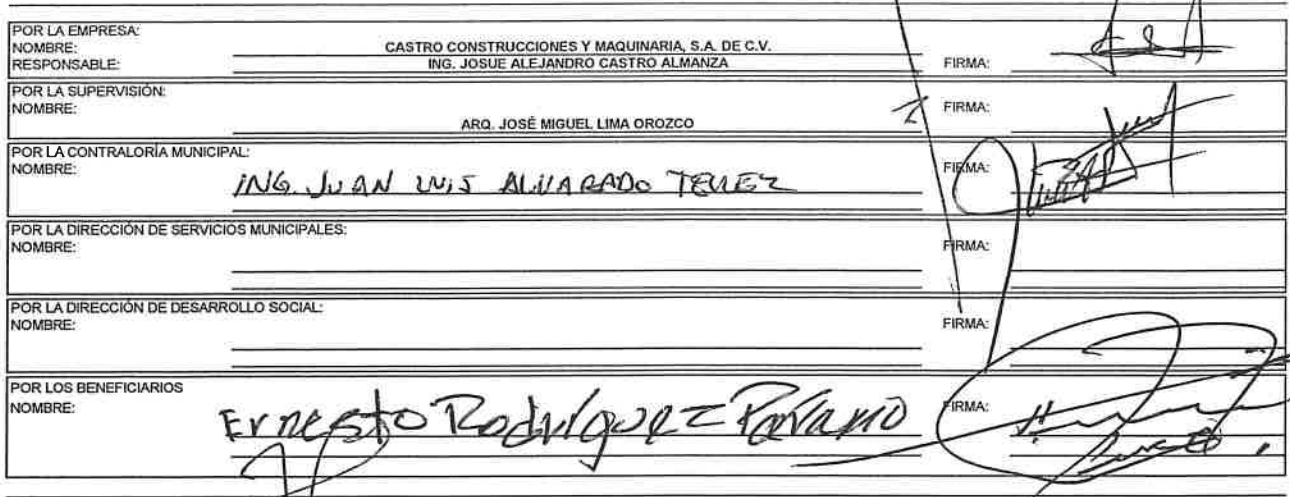 POR LA EMPRESA:
NOMBRE: CASTRO CONSTRUCCIONES Y MAQUINARIA, S.A. DE C.V.
RESPONSABLE: ING. JOSUE ALEJANDRO CASTRO ALMANZA FIRMA:
POR LA SUPERVISIÓN:
NOMBRE: FIRMA:
ARQ. JOSÉ MIGUEL LIMA OROZCO
POR LA CONTRALORÍA MUNICIPAL:
NOMBRE: FIRMA:
ING. JUAN LUIS ALVARADO TELLEZ
POR LA DIRECCIÓN DE SERVICIOS MUNICIPALES:
NOMBRE: FIRMA:
POR LA DIRECCIÓN DE DESARROLLO SOCIAL:
NOMBRE: FIRMA:
POR LOS BENEFICIARIOS
NOMBRE: Ernesto Rodríguez FIRMA: